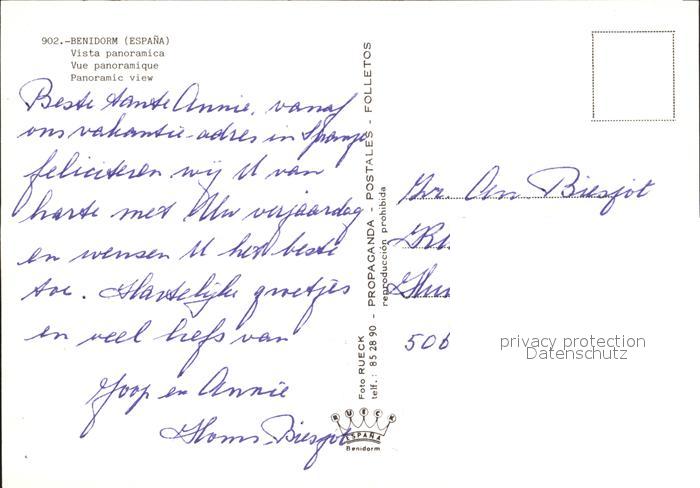 902.-BENIDORM (ESPAÑA)
Vista panoramica
Vue panoramique
Panoramic view
Beste tante Annie, vanaf
ons vakantie-adres in Spanje
feliciteren wij U van
harte met Uw verjaardag
en wensen U het beste
toe. Hartelijke groetjes
en veel liefs van
Joop en Annie
Homs-Biesjot
Foto RUECK - PROPAGANDA - POSTALES - FOLLETOS
telf.: 85 28 90
reproducción prohibida
RUECK
ESPAÑA
Benidorm
Biesjot
506
privacy protection
Datenschutz